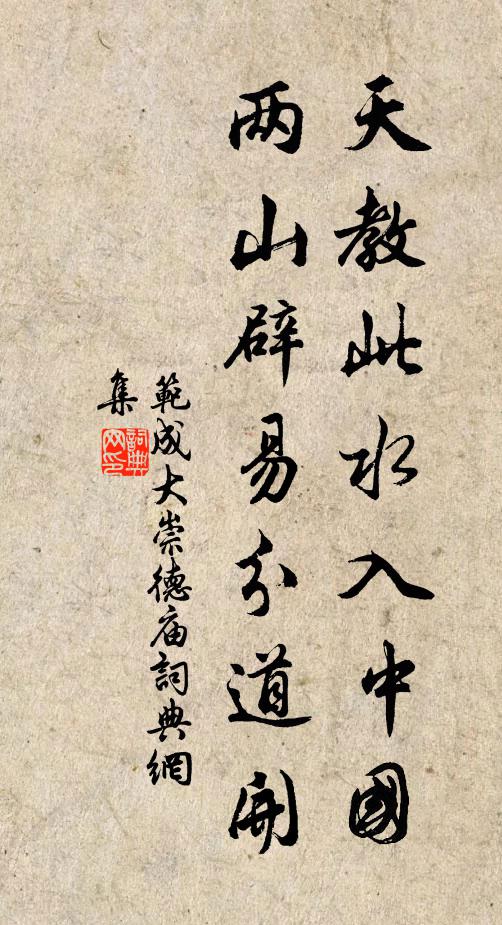 天教此水入中國
两山辟易分道開
範成大崇德庙詞典網
集
詞典
网印